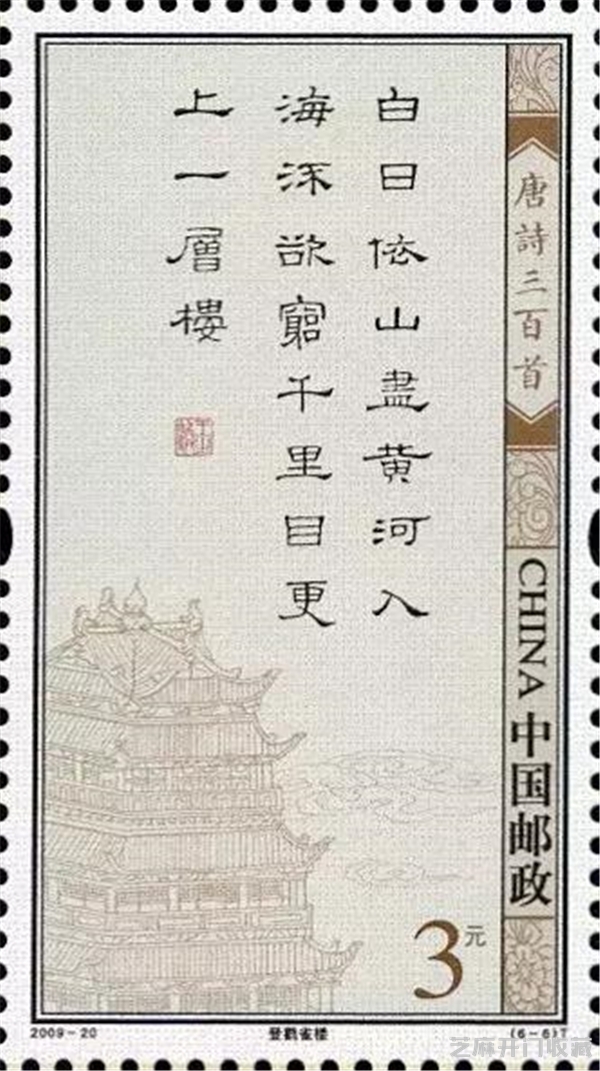 白日依山盡黄河入
海流欲窮千里目更
上一層樓
唐詩三百首
CHINA 中国邮政
3元
2009-20
登鸛雀楼
(6-6)T
芝麻开门收藏